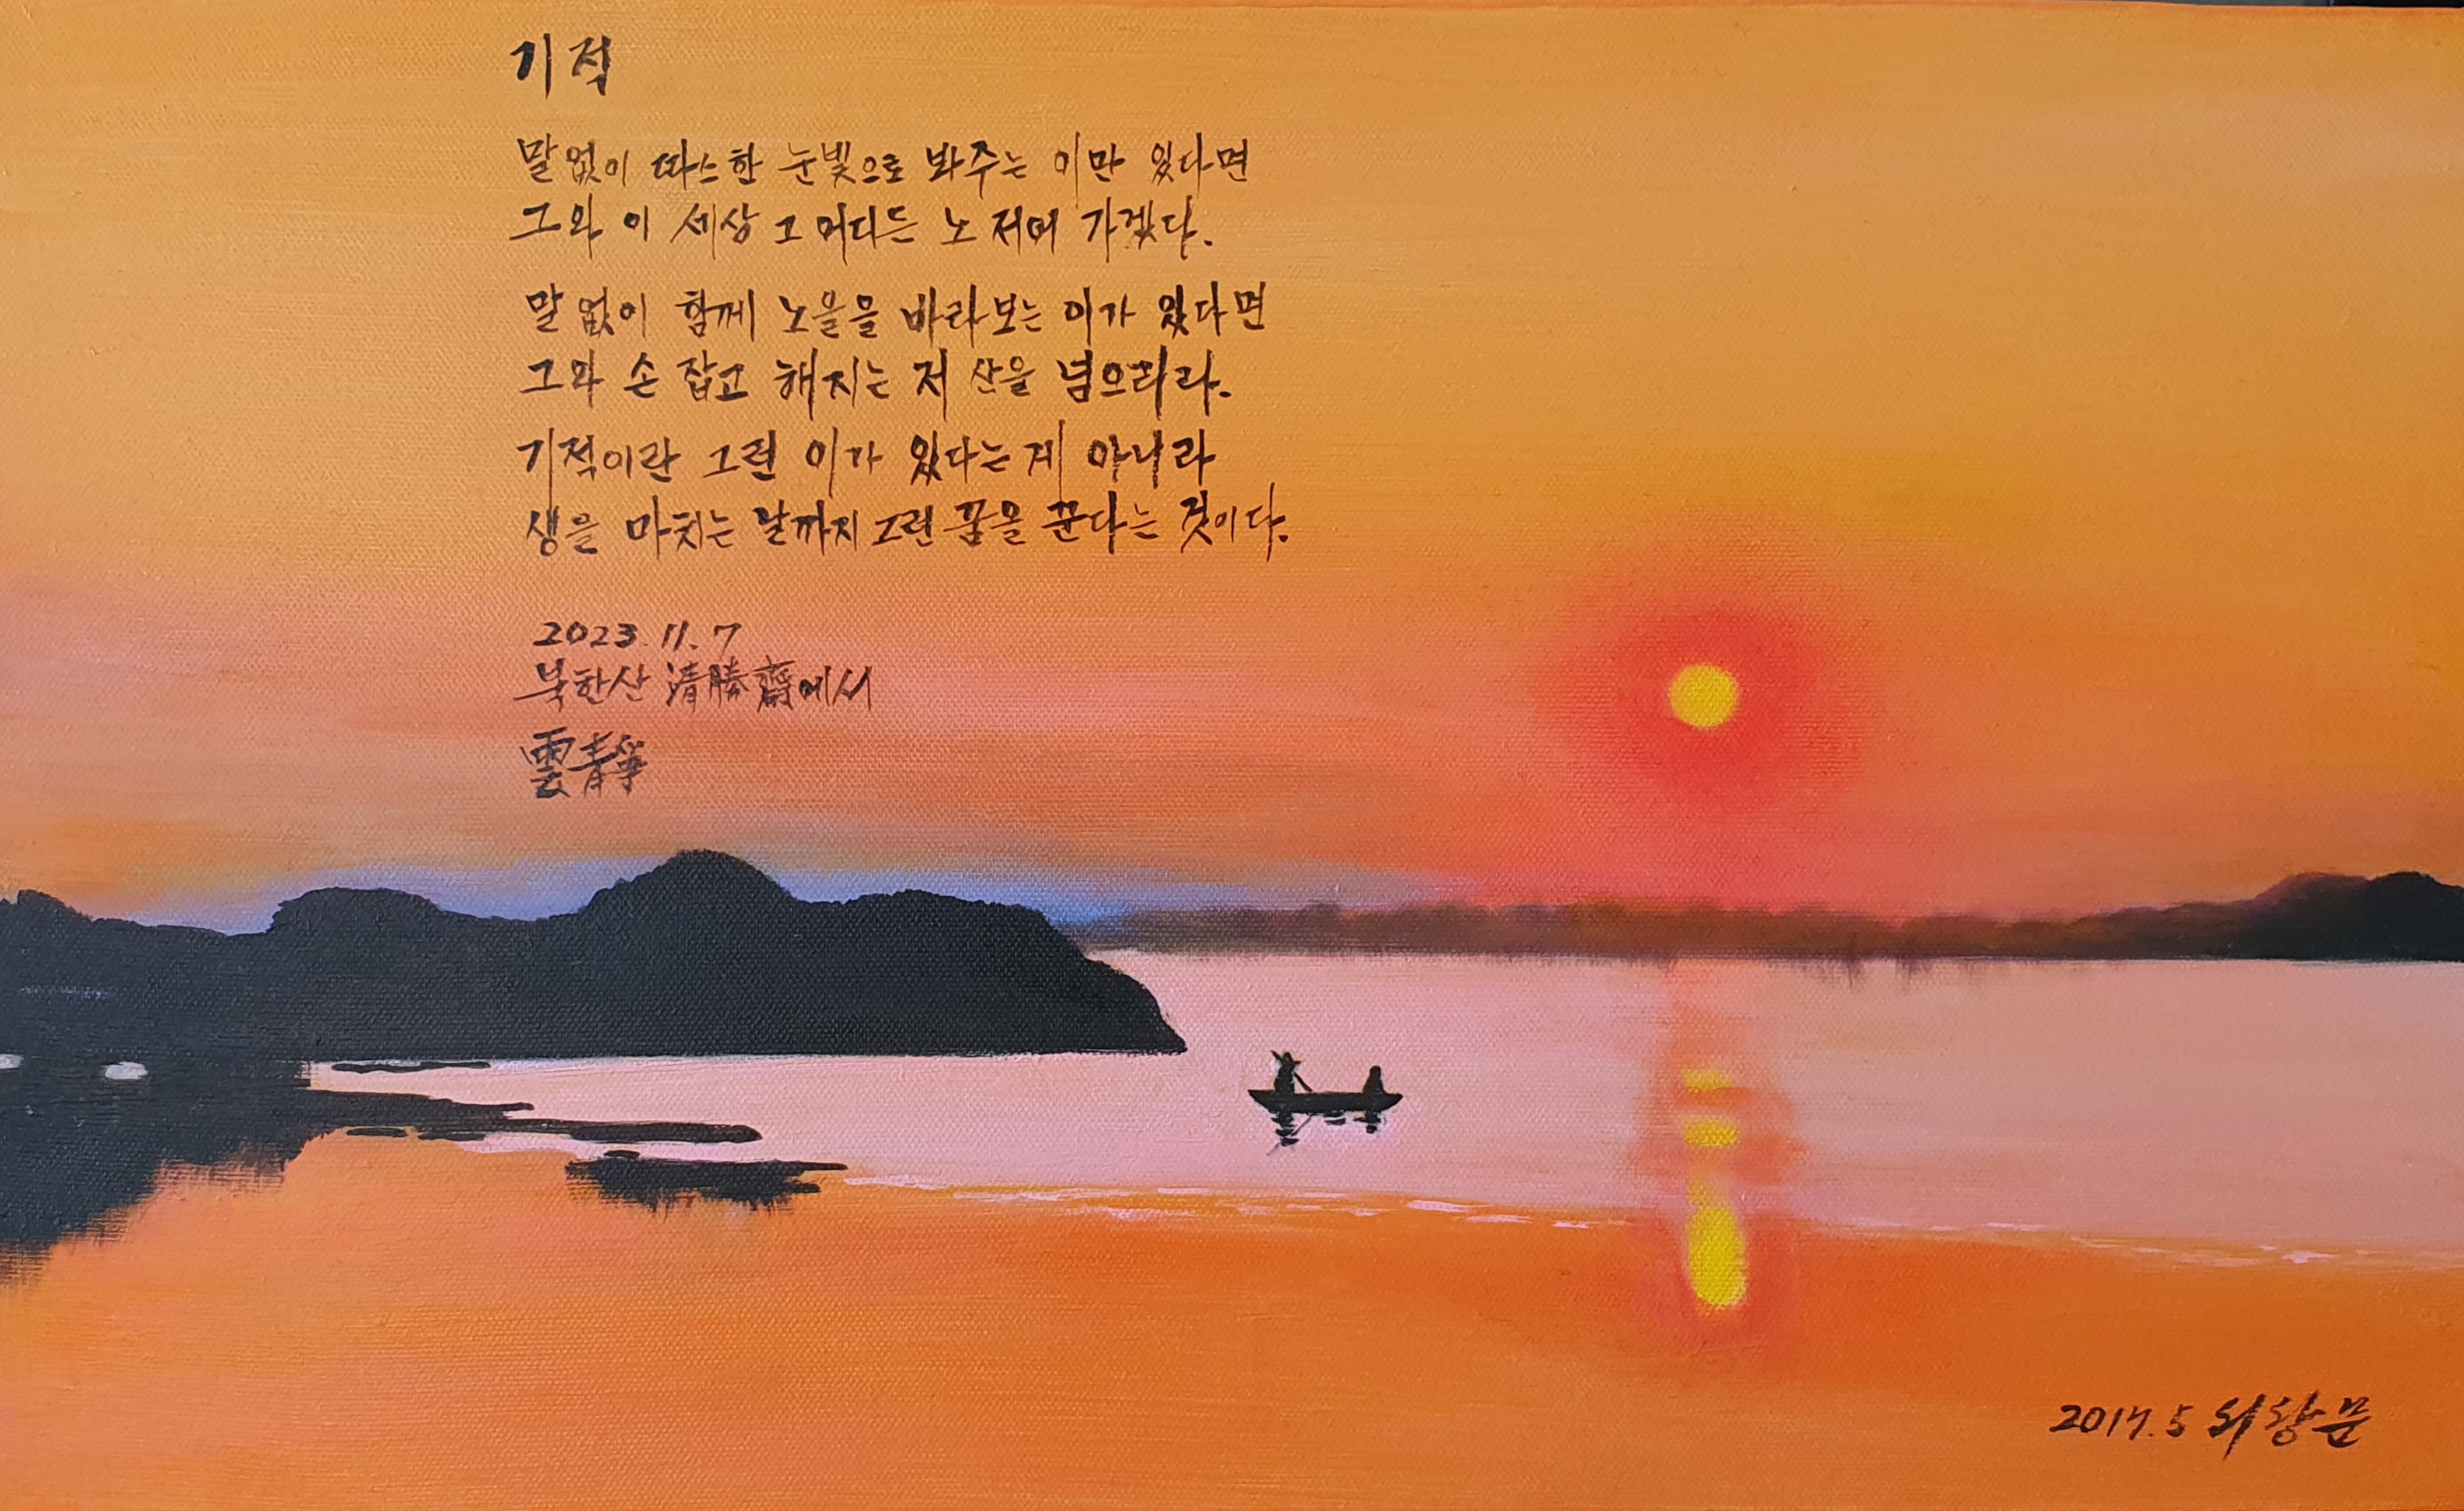 기적
말없이 따스한 눈빛으로 봐주는 이만 있다면
그와 이 세상 그 어디든 노 저어 가겠다.
말없이 함께 노을을 바라보는 이가 있다면
그와 손 잡고 해지는 저 산을 넘으리라.
기적이란 그런 이가 있다는 게 아니라
생을 마치는 날까지 그런 꿈을 꾼다는 것이다.
2023. 11. 7
북한산 淸勝齋에서
雲靑
2017. 5